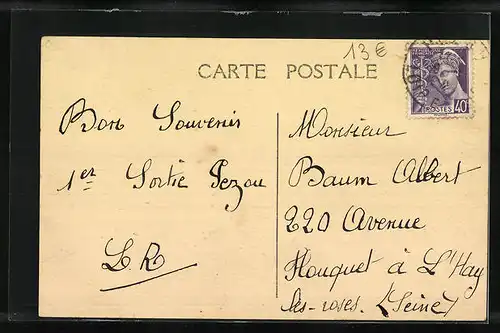 13€
CARTE POSTALE
POSTES 40
Bon Souvenir
1er Sortie Pezou
L.R
Monsieur
Baum Albert
220 Avenue
Flouquet à L'Hay
les-roses. (Seine)